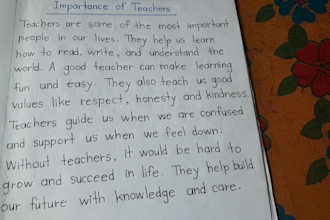 Importance of Teachers
Teachers are some of the most important
people in our lives. They help us learn
how to read, write, and understand the
world. A good teacher can make learning
fun and easy. They also teach us good
values like respect, honesty and kindness.
Teachers guide us when we are confused
and support us when we feel down.
Without teachers, it would be hard to
grow and succeed in life. They help build
our future with knowledge and care.